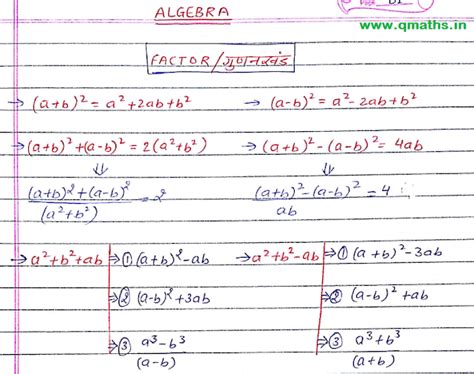 ALGEBRA
www.qmaths.in
FACTOR/गुणनखंड
→ (a+b)² = a²+2ab+b² → (a-b)² = a²-2ab+b²
→ (a+b)²+(a-b)² = 2(a²+b²) → (a+b)²-(a-b)² = 4ab
⇓ ⇓
(a+b)²+(a-b)² / (a²+b²) = 2 (a+b)²-(a-b)² / ab = 4
→ a²+b²+ab ⇒① (a+b)²-ab → a²+b²-ab ⇒① (a+b)²-3ab
⇒② (a-b)²+3ab ⇒② (a-b)²+ab
⇒③ a³-b³ / (a-b) ⇒③ a³+b³ / (a+b)